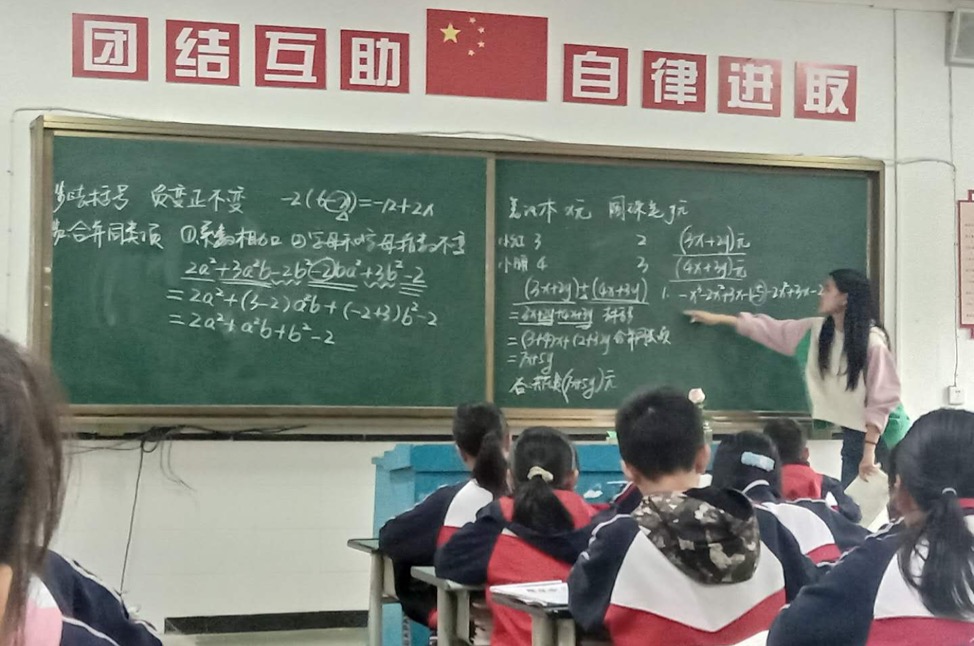 团结互助 自律进取
去括号 负变正不变 -2(6-x)=-12+2x
合并同类项 ①系数相加 ②字母和字母指数不变
2a²+3a²b-2b²-2ba²+3b²-2
=2a²+(3-2)a²b+(-2+3)b²-2
=2a²+a²b+b²-2
笔记本 x元 圆珠笔 y元
小红 3 2 (3x+2y)元
小丽 4 3 (4x+3y)元
(3x+2y)+(4x+3y)
=3x+2y+4x+3y
=(3+4)x+(2+3)y 合并同类项
=7x+5y
(7x+5y)元
1. -x²-2x²+3x-1